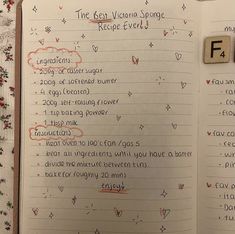 The Best Victoria Sponge
Recipe Ever!!
ingredients:
- 200g of caster sugar
- 200g of softened butter
- 4 eggs (beaten)
- 200g self-raising flower
- 1 tsp baking powder
- 1 tbsp milk
instructions:
- heat oven to 190°C fan / gas 5
- beat all ingredients until you have a batter
- divide the mixture between tins
- bake for roughly 20 mins
enjoy!
F
4
fav
fav
fav